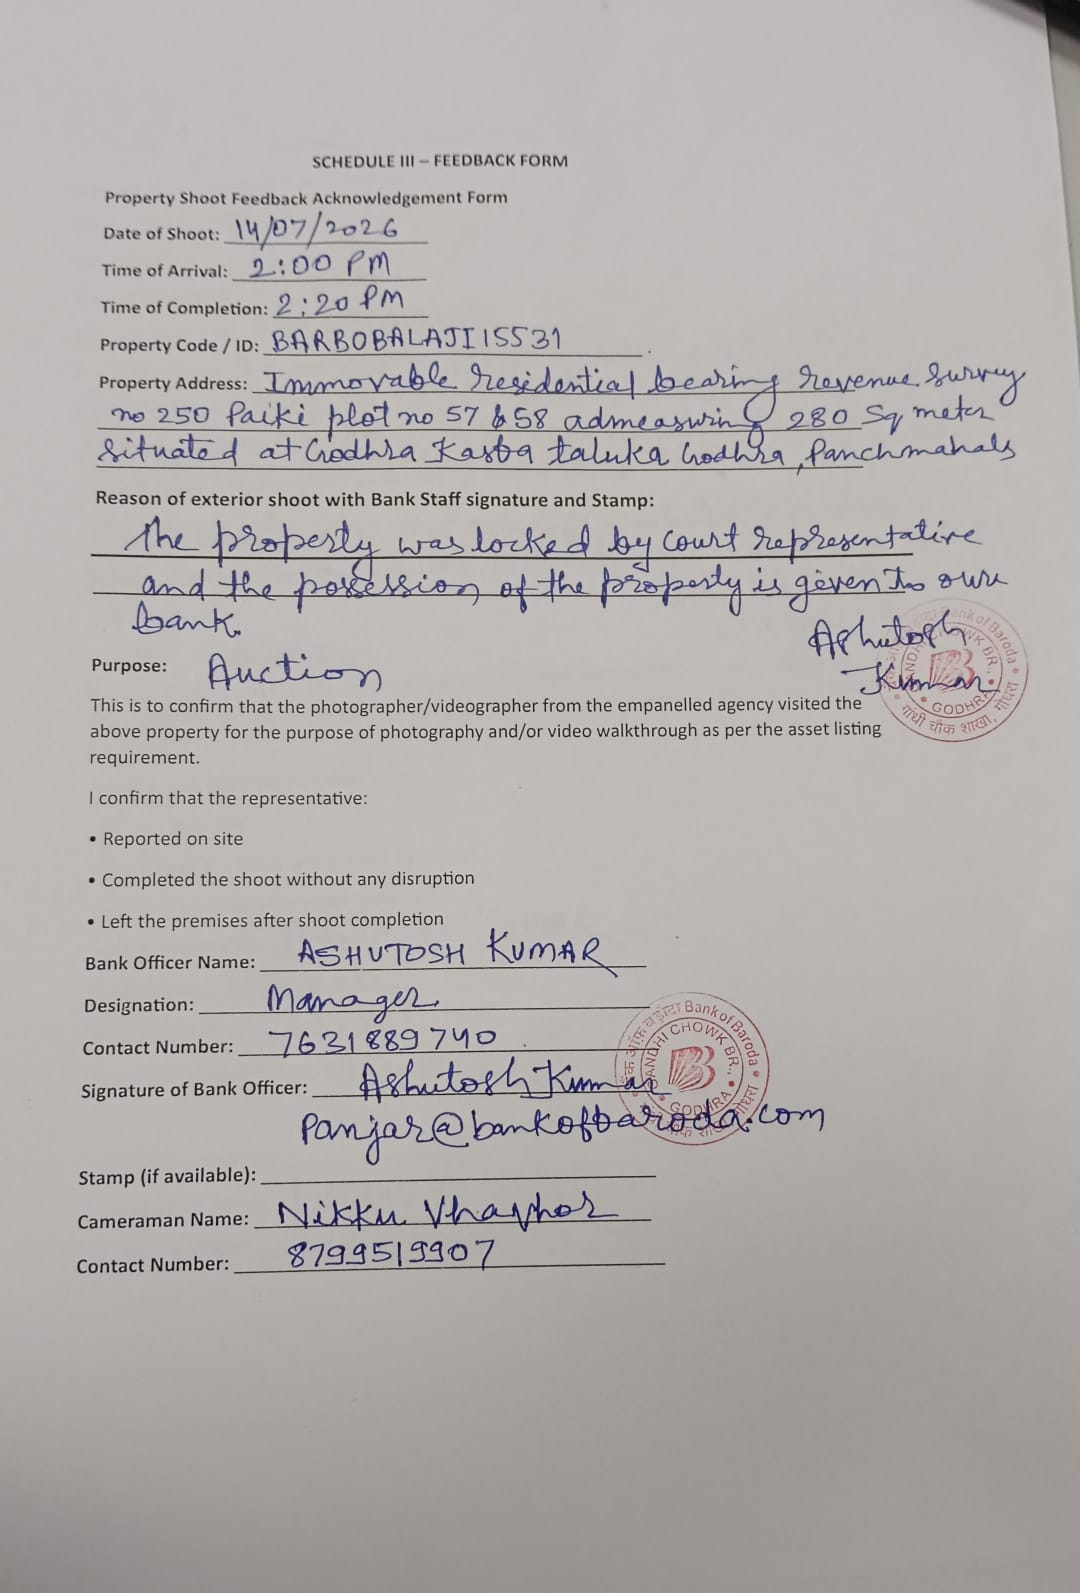 SCHEDULE III – FEEDBACK FORM
Property Shoot Feedback Acknowledgement Form
Date of Shoot: 14/07/2026
Time of Arrival: 2:00 PM
Time of Completion: 2:20 PM
Property Code / ID: BARBOBALAJI15531
Property Address: Immovable residential bearing revenue survey
no 250 Paiki plot no 57 & 58 admeasuring 280 Sq meter
situated at Godhra Kasba taluka Godhra, Panchmahals
Reason of exterior shoot with Bank Staff signature and Stamp:
The property was locked by court representative
and the possession of the property is given to our
bank.
Ashutosh
Kumar
Bank of Baroda
GANDHI CHOWK BR.,
GODHRA
गांधी चौक शाखा, गोधरा
Purpose: Auction
This is to confirm that the photographer/videographer from the empanelled agency visited the
above property for the purpose of photography and/or video walkthrough as per the asset listing
requirement.
I confirm that the representative:
• Reported on site
• Completed the shoot without any disruption
• Left the premises after shoot completion
Bank Officer Name: ASHUTOSH KUMAR
Designation: Manager
Contact Number: 7631889740
Signature of Bank Officer: Ashutosh Kumar
Panjar@bankofbaroda.com
Bank of Baroda
GANDHI CHOWK BR.,
GODHRA
Stamp (if available):
Cameraman Name: Nikku
Contact Number: 8799519907